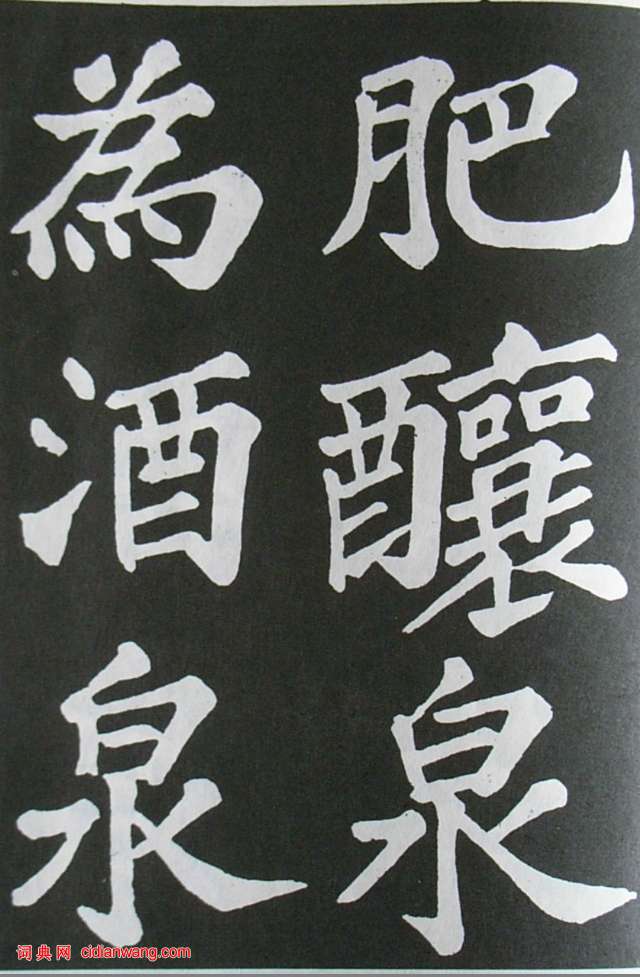 肥釀泉
為酒泉
词典网 cidianwang.com